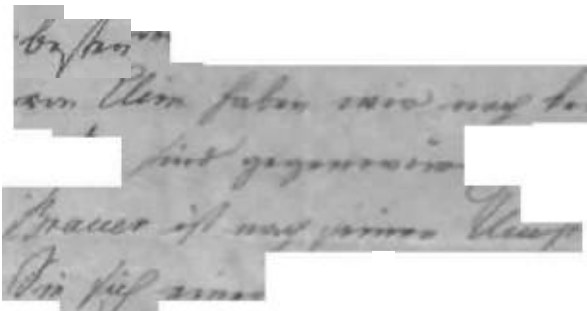 besten
von Ulm haben wir noch
sind gegenwär
Brauer ist nach seinen
Sie sich einen